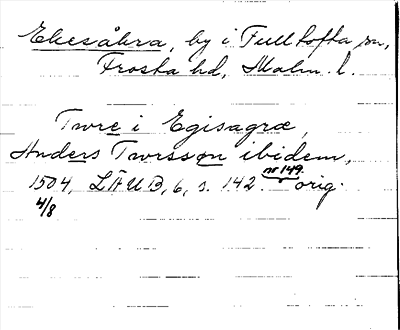 Ekesåkra, by i Fulltofta sn,
Frosta hd, Malm. l.
Twre i Egisagræ,
Anders Twrsson ibidem,
1504, LÄUB, 6, s. 142. nr 149. orig.
4/8